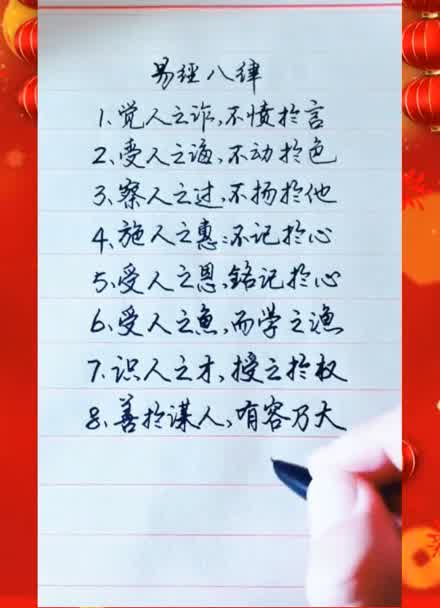 易经八律
1、觉人之诈,不愤于言
2、受人之侮,不动于色
3、察人之过,不扬于他
4、施人之惠:不记于心
5、受人之恩,铭记于心
6、受人之鱼,而学之渔
7、识人之才,授之于权
8、善于谋人,有容乃大